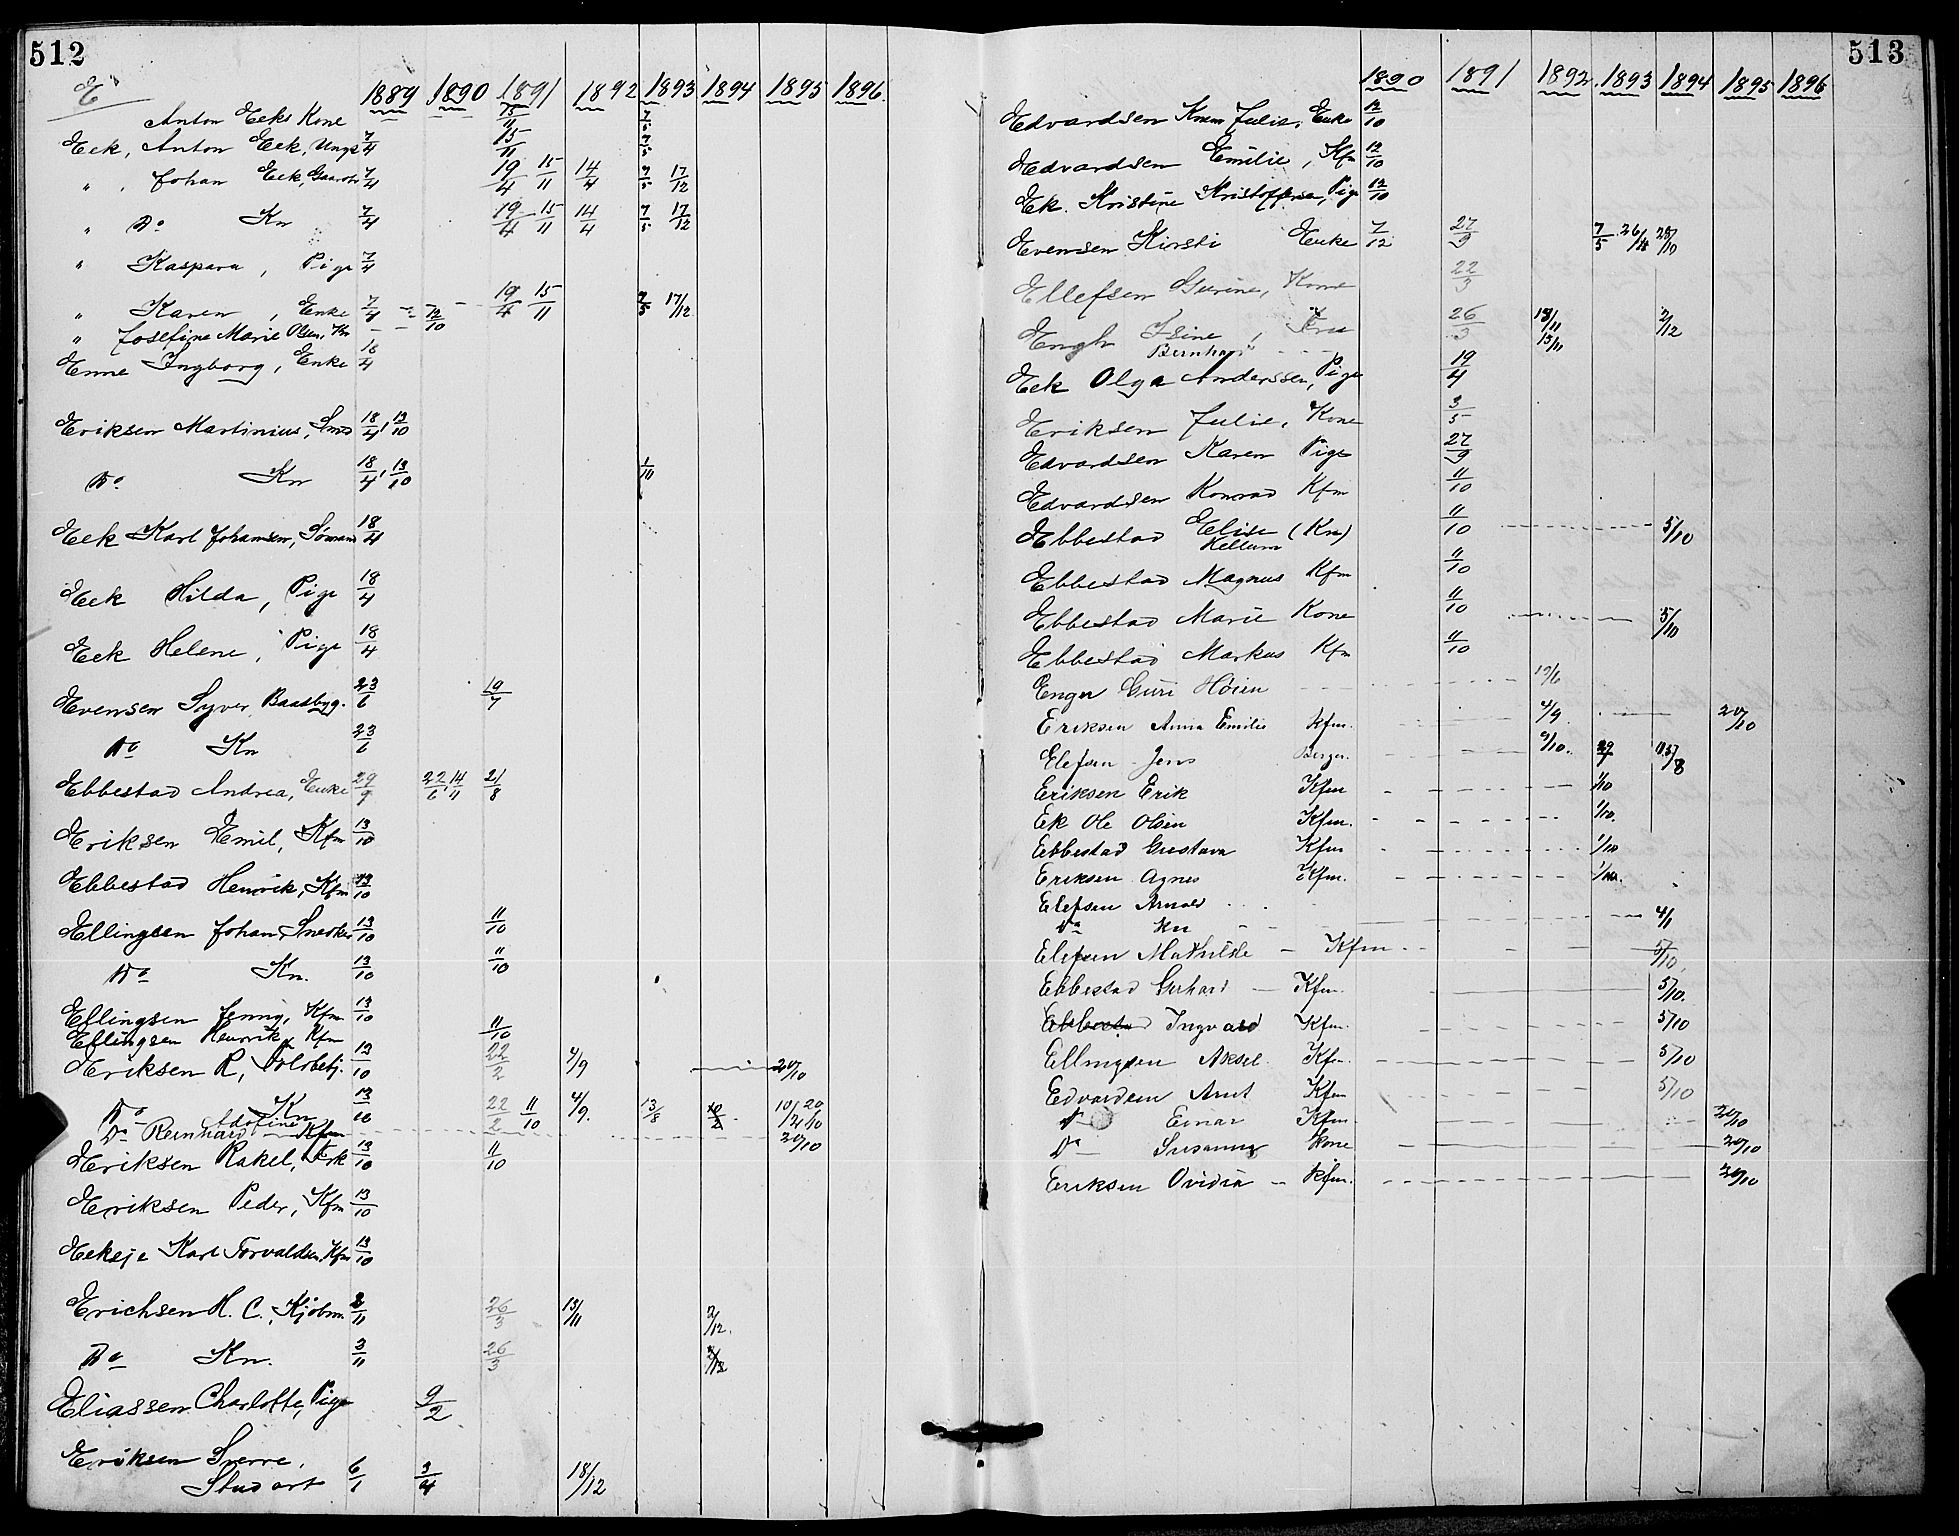 512
E 1889 1890 1891 1892 1893 1894 1895 1896
Anton Eeks Kone 15/11 7/5
Eek, Anton Eek, Ungk 7/4 15/11 7/5
" , Johan Eek, Gaardbr 7/4 19/4 15/11 14/4 7/5 17/12
" Do Kn 7/4 19/4 15/11 14/4 7/5 17/12
" Kaspara, Pige 7/4
" Karen, Enke 7/4 12/10 19/4 15/11 7/5 17/12
" Josefine Marie Olsen, Kn
Enne Ingborg, Enke 18/4
Eriksen Martinius, Smed 18/4, 13/10
Do Kn 18/4, 13/10 1/10
Eek Karl Johansen, Sømand 18/4
Eek Hilda, Pige 18/4
Eek Helene, Pige 18/4
Evensen Syver, Baadbyg. 23/6 19/7
Do Kn 23/6
Ebbestad Andrea, Enke 29/9 22/6, 14/11 21/8
Eriksen Emil, Kfm 13/10
Ebbestad Henrik, Kfm 13/10
Ellingsen Johan, Snedker 13/10 11/10
Do Kn. 13/10 11/10
Ellingsen Jenny, Kfm 13/10
Ellingsen Henrik, Kfm 11/10
Eriksen R, Politibetj. 13/10 22/2 4/9 20/10
Do Kn 13/10 22/2 11/10 4/9. 13/8 10/2 10/12 20/10
Adofine
Do Reinhard Kfm 20/10
Eriksen Rakel, Frk 13/10 11/10
Eriksen Peder, Kfm 13/10
Eekeje Karl Torvaldsen, Kfm 13/10
Erichsen H. C., Kjøbm. 3/11 26/3 13/11 2/12.
Do Kn. 3/11 26/3 2/12
Eliassen Charlotte, Pige 9/2
Eriksen Sverre,
Stud art 6/1 3/4 18/12
513
1890 1891 1892 1893 1894 1895 1896
Edvardsen Karen Julie, Enke 12/10
Edvardsen Emilie, Kfm 12/10
Ek. Kristine Kristoffersen, Pige 12/10
Evensen Kirsti Enke 7/12 27/9 7/5 26/11 25/10
Ellefsen Gurine, Kone 22/3
Engh Isine, Fru 26/3 13/11 2/12
Bernhard 13/11
Eek Olga Anderssen, Pige 19/4
Eriksen Julie, Kone 3/5
Edvardsen Karen Pige 27/9
Edvardsen Konrad Kfm 11/10
Ebbestad Elise (Kn) 11/10 5/10
Hellum
Ebbestad Magnus Kfm 11/10
Ebbestad Marie Kone 11/10 5/10
Ebbestad Markus Kfm 11/10
Enger Guri Höien 19/6
Eriksen Anna Emilie Kfm. 4/9 20/10
Elefsen Jens Berger. 9/10. 29/7
Eriksen Erik Kfm 1/10
Ek Ole Olsen Kfm. 1/10.
Ebbestad Gustava Kfm 1/10
Eriksen Agnes Kfm. 1/10.
Elefsen Arnold
Do Kn 4/1
Elefsen Mathilde Kfm 5/10.
Ebbestad Gerhard Kfm. 5/10.
Ebbestad Ingvald Kfm. 5/10
Ellingsen Aksel Kfm. 5/10
Edvardsen Arnt Kfm 5/10
Do Einar Kfm 20/10
Do Susanna Kone 20/10
Eriksen Ovidia Kfm. 20/10